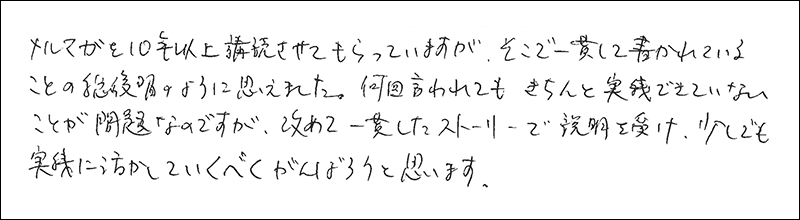 メルマガを10年以上講読させてもらっていますが、そこで一貫して書かれている
ことの総復習のように思えました。何回言われてもきちんと実践できていない
ことが問題なのですが、改めて一貫したストーリーで説明を受け、少しでも
実践に活かしていくべくがんばろうと思います。